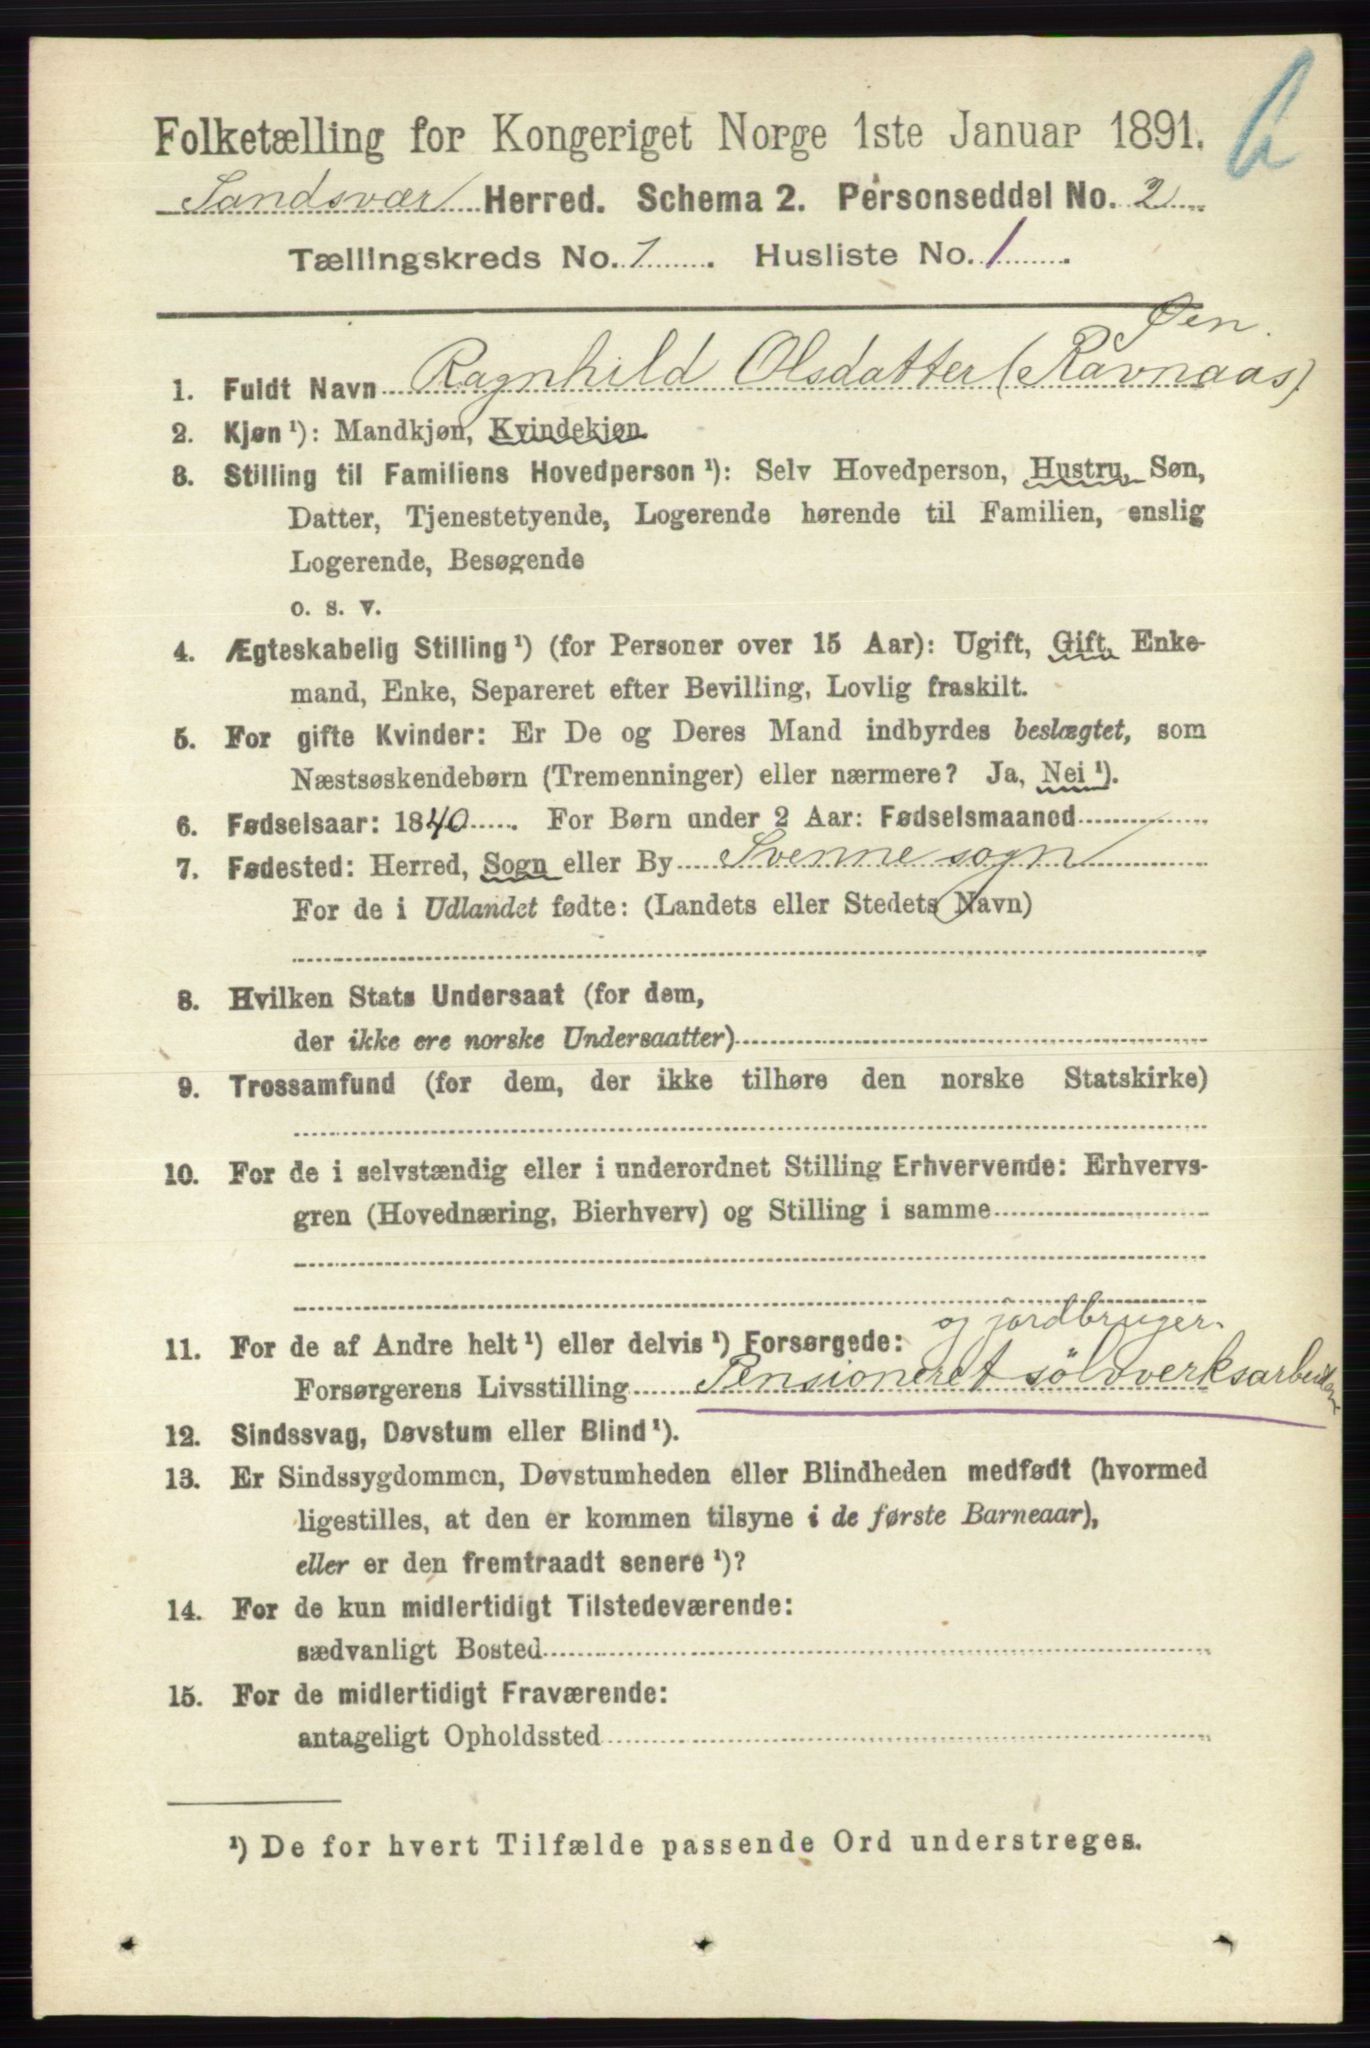 Folketælling for Kongeriget Norge 1ste Januar 1891.
Sandsvær Herred. Schema 2. Personseddel No. 2
Tællingskreds No. 1. Husliste No. 1.
Øen.
1. Fuldt Navn Ragnhild Olsdatter (Ravnaas)
2. Kjøn¹): Mandkjøn, Kvindekjøn.
3. Stilling til Familiens Hovedperson¹): Selv Hovedperson, Hustru, Søn,
Datter, Tjenestetyende, Logerende hørende til Familien, enslig
Logerende, Besøgende
o. s. v.
4. Ægteskabelig Stilling¹) (for Personer over 15 Aar): Ugift, Gift, Enke-
mand, Enke, Separeret efter Bevilling, Lovlig fraskilt.
5. For gifte Kvinder: Er De og Deres Mand indbyrdes beslægtet, som
Næstsøskendebørn (Tremenninger) eller nærmere? Ja, Nei¹).
6. Fødselsaar: 1840. For Børn under 2 Aar: Fødselsmaaned
7. Fødested: Herred, Sogn eller By Svenne sogn
For de i Udlandet fødte: (Landets eller Stedets Navn)
8. Hvilken Stats Undersaat (for dem,
der ikke ere norske Undersaatter)
9. Trossamfund (for dem, der ikke tilhøre den norske Statskirke)
10. For de i selvstændig eller i underordnet Stilling Erhvervende: Erhvervs-
gren (Hovednæring, Bierhverv) og Stilling i samme
og jordbruger.
11. For de af Andre helt¹) eller delvis¹) Forsørgede:
Forsørgerens Livsstilling Pensioneret sölvverksarbeider
12. Sindssvag, Døvstum eller Blind¹).
13. Er Sindssygdommen, Døvstumheden eller Blindheden medfødt (hvormed
ligestilles, at den er kommen tilsyne i de første Barneaar),
eller er den fremtraadt senere¹)?
14. For de kun midlertidigt Tilstedeværende:
sædvanligt Bosted
15. For de midlertidigt Fraværende:
antageligt Opholdssted
¹) De for hvert Tilfælde passende Ord understreges.